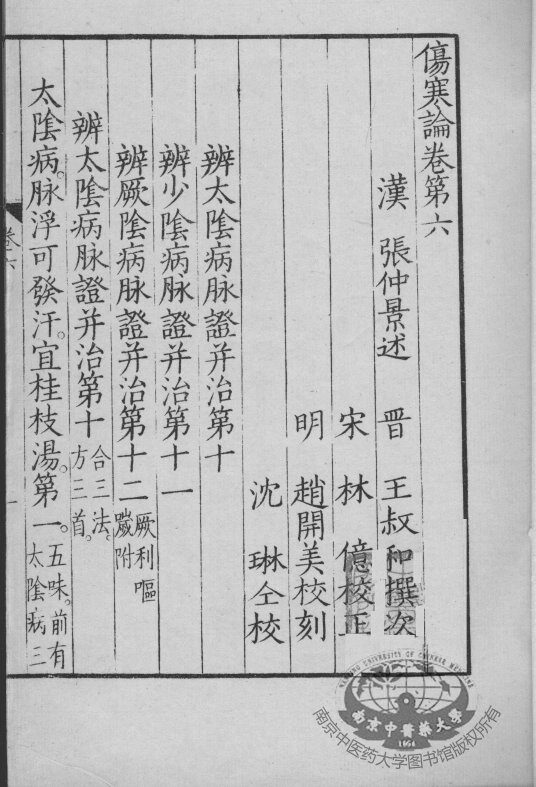 傷寒論卷第六
漢 張仲景述 晋 王叔和撰次
宋 林 億校正
明 趙開美校刻
沈 琳仝校
辨太陰病脉證并治第十
辨少陰病脉證并治第十一
辨厥陰病脉證并治第十二 厥利嘔
噦附
辨太陰病脉證并治第十 合三法。
方三首。
太陰病。脉浮可發汗。宜桂枝湯。第一。五味。前有
太陰病三
卷六
一
NANJING UNIVERSITY OF CHINESE MEDICINE
南京中醫藥大學
1954
南京中医药大学图书馆版权所有